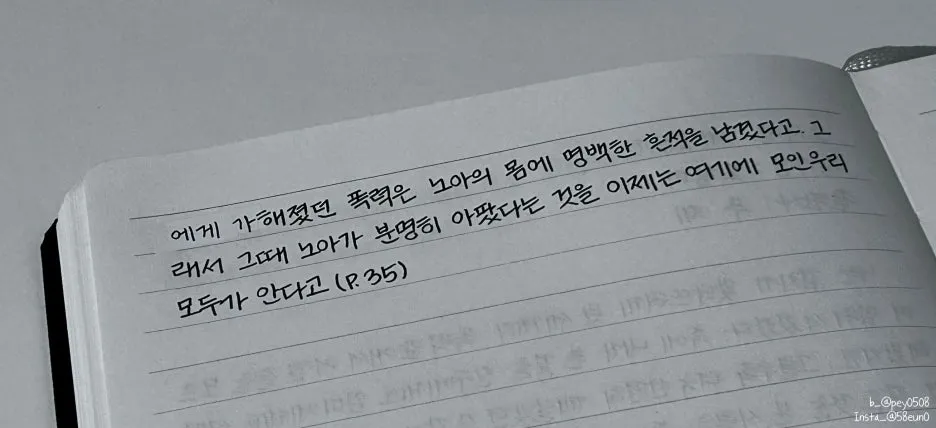 에게 가해졌던 폭력은 노아의 몸에 명백한 흔적을 남겼다고. 그
래서 그때 노아가 분명히 아팠다는 것을 이제는 여기에 모인우리
모두가 안다고 (P. 35)
b_@pey0508
Insta_@58eun0